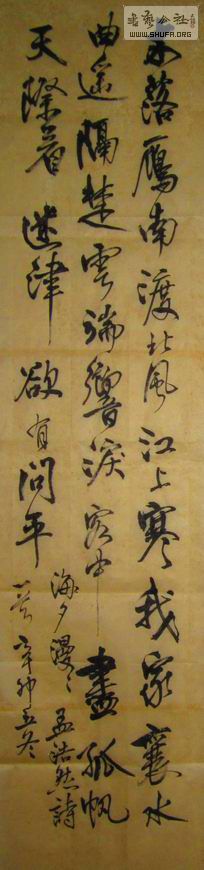 書藝公社
WWW.SHUFA.ORG
木落鴈南渡北風江上寒我家襄水
曲遙隔楚雲端響淚客中盡孤帆
天際看迷津欲有問平
海夕漫〻孟浩然詩
一首辛卯立冬